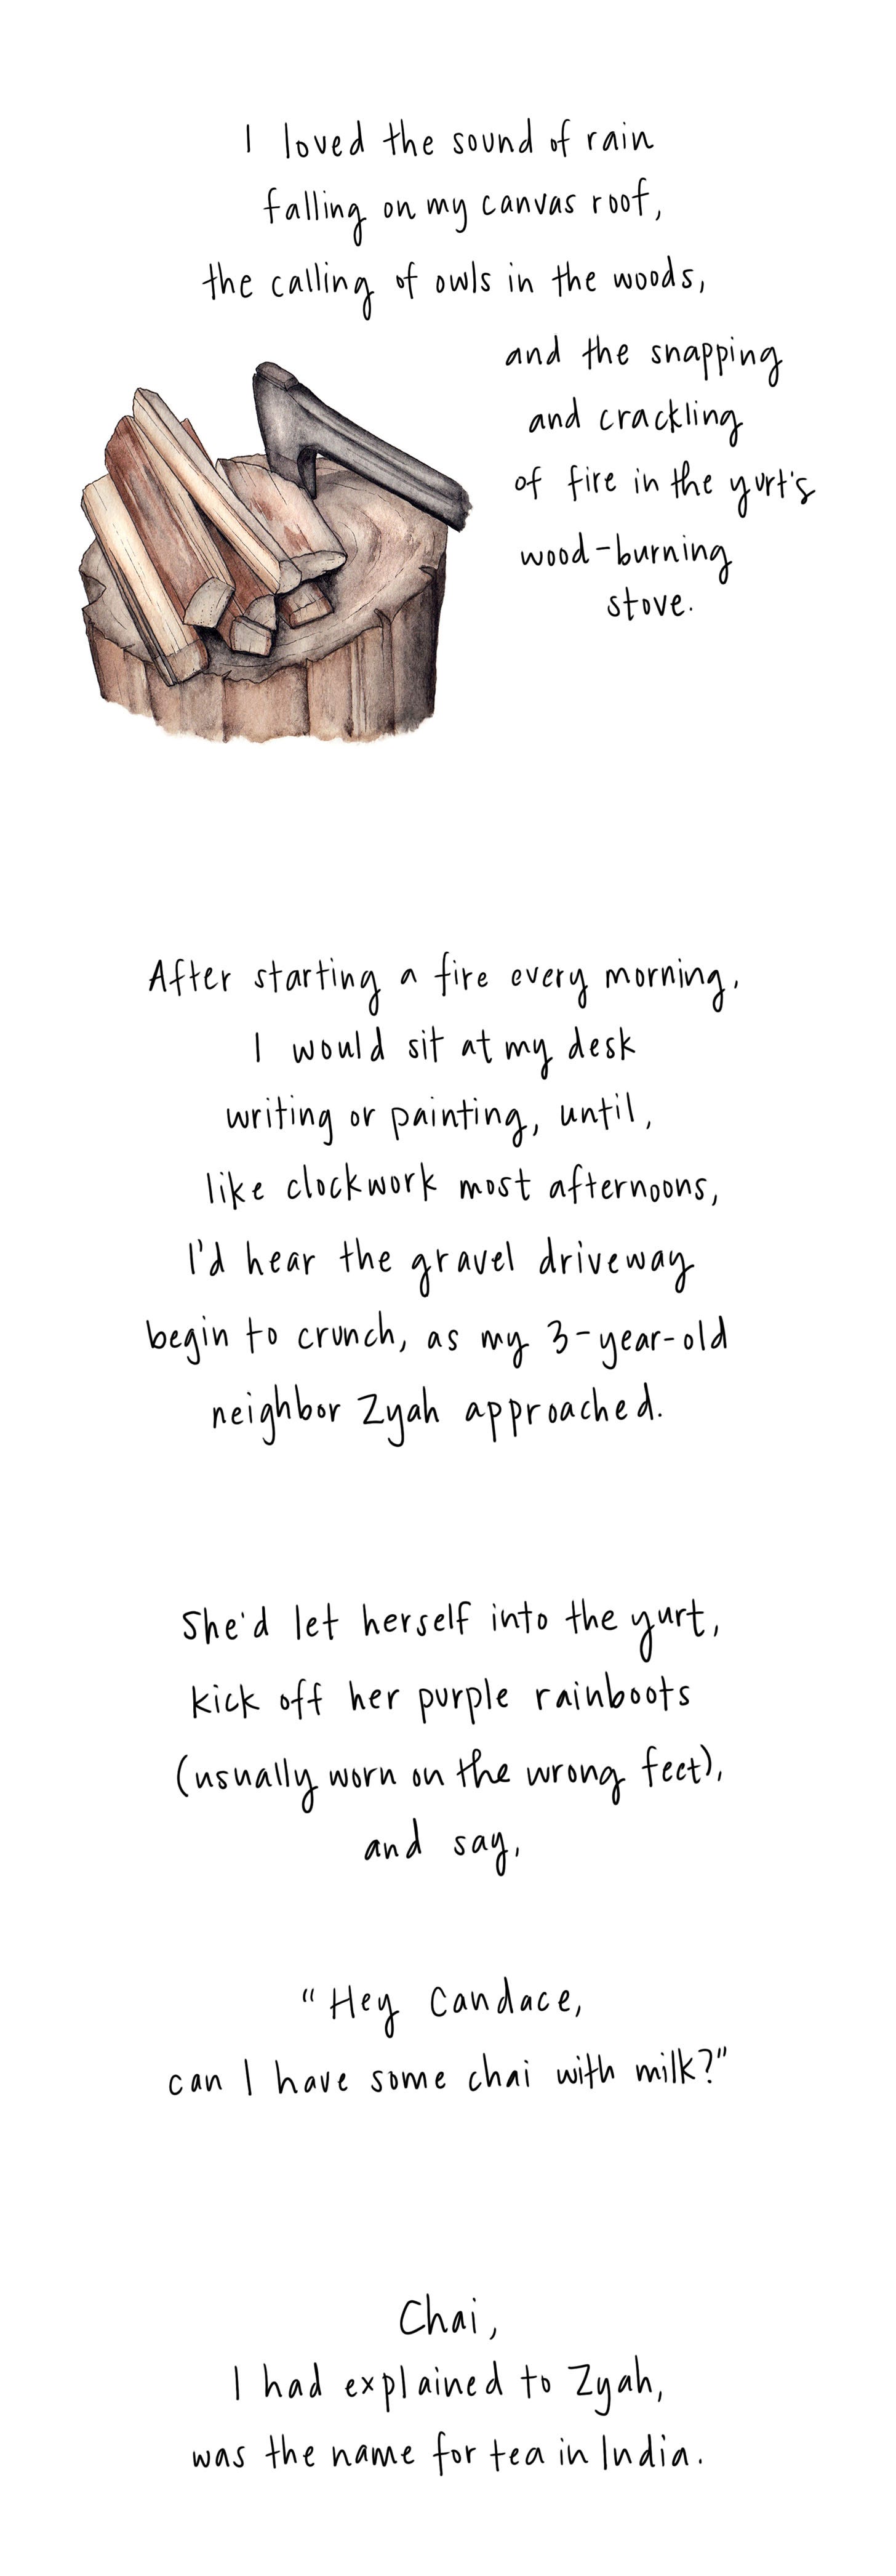 I loved the sound of rain
falling on my canvas roof,
the calling of owls in the woods,
and the snapping
and crackling
of fire in the yurt's
wood-burning
stove.
After starting a fire every morning,
I would sit at my desk
writing or painting, until,
like clockwork most afternoons,
I'd hear the gravel driveway
begin to crunch, as my 3-year-old
neighbor Zyah approached.
She'd let herself into the yurt,
kick off her purple rainboots
(usually worn on the wrong feet),
and say,
"Hey Candace,
can I have some chai with milk?"
Chai,
I had explained to Zyah,
was the name for tea in India.